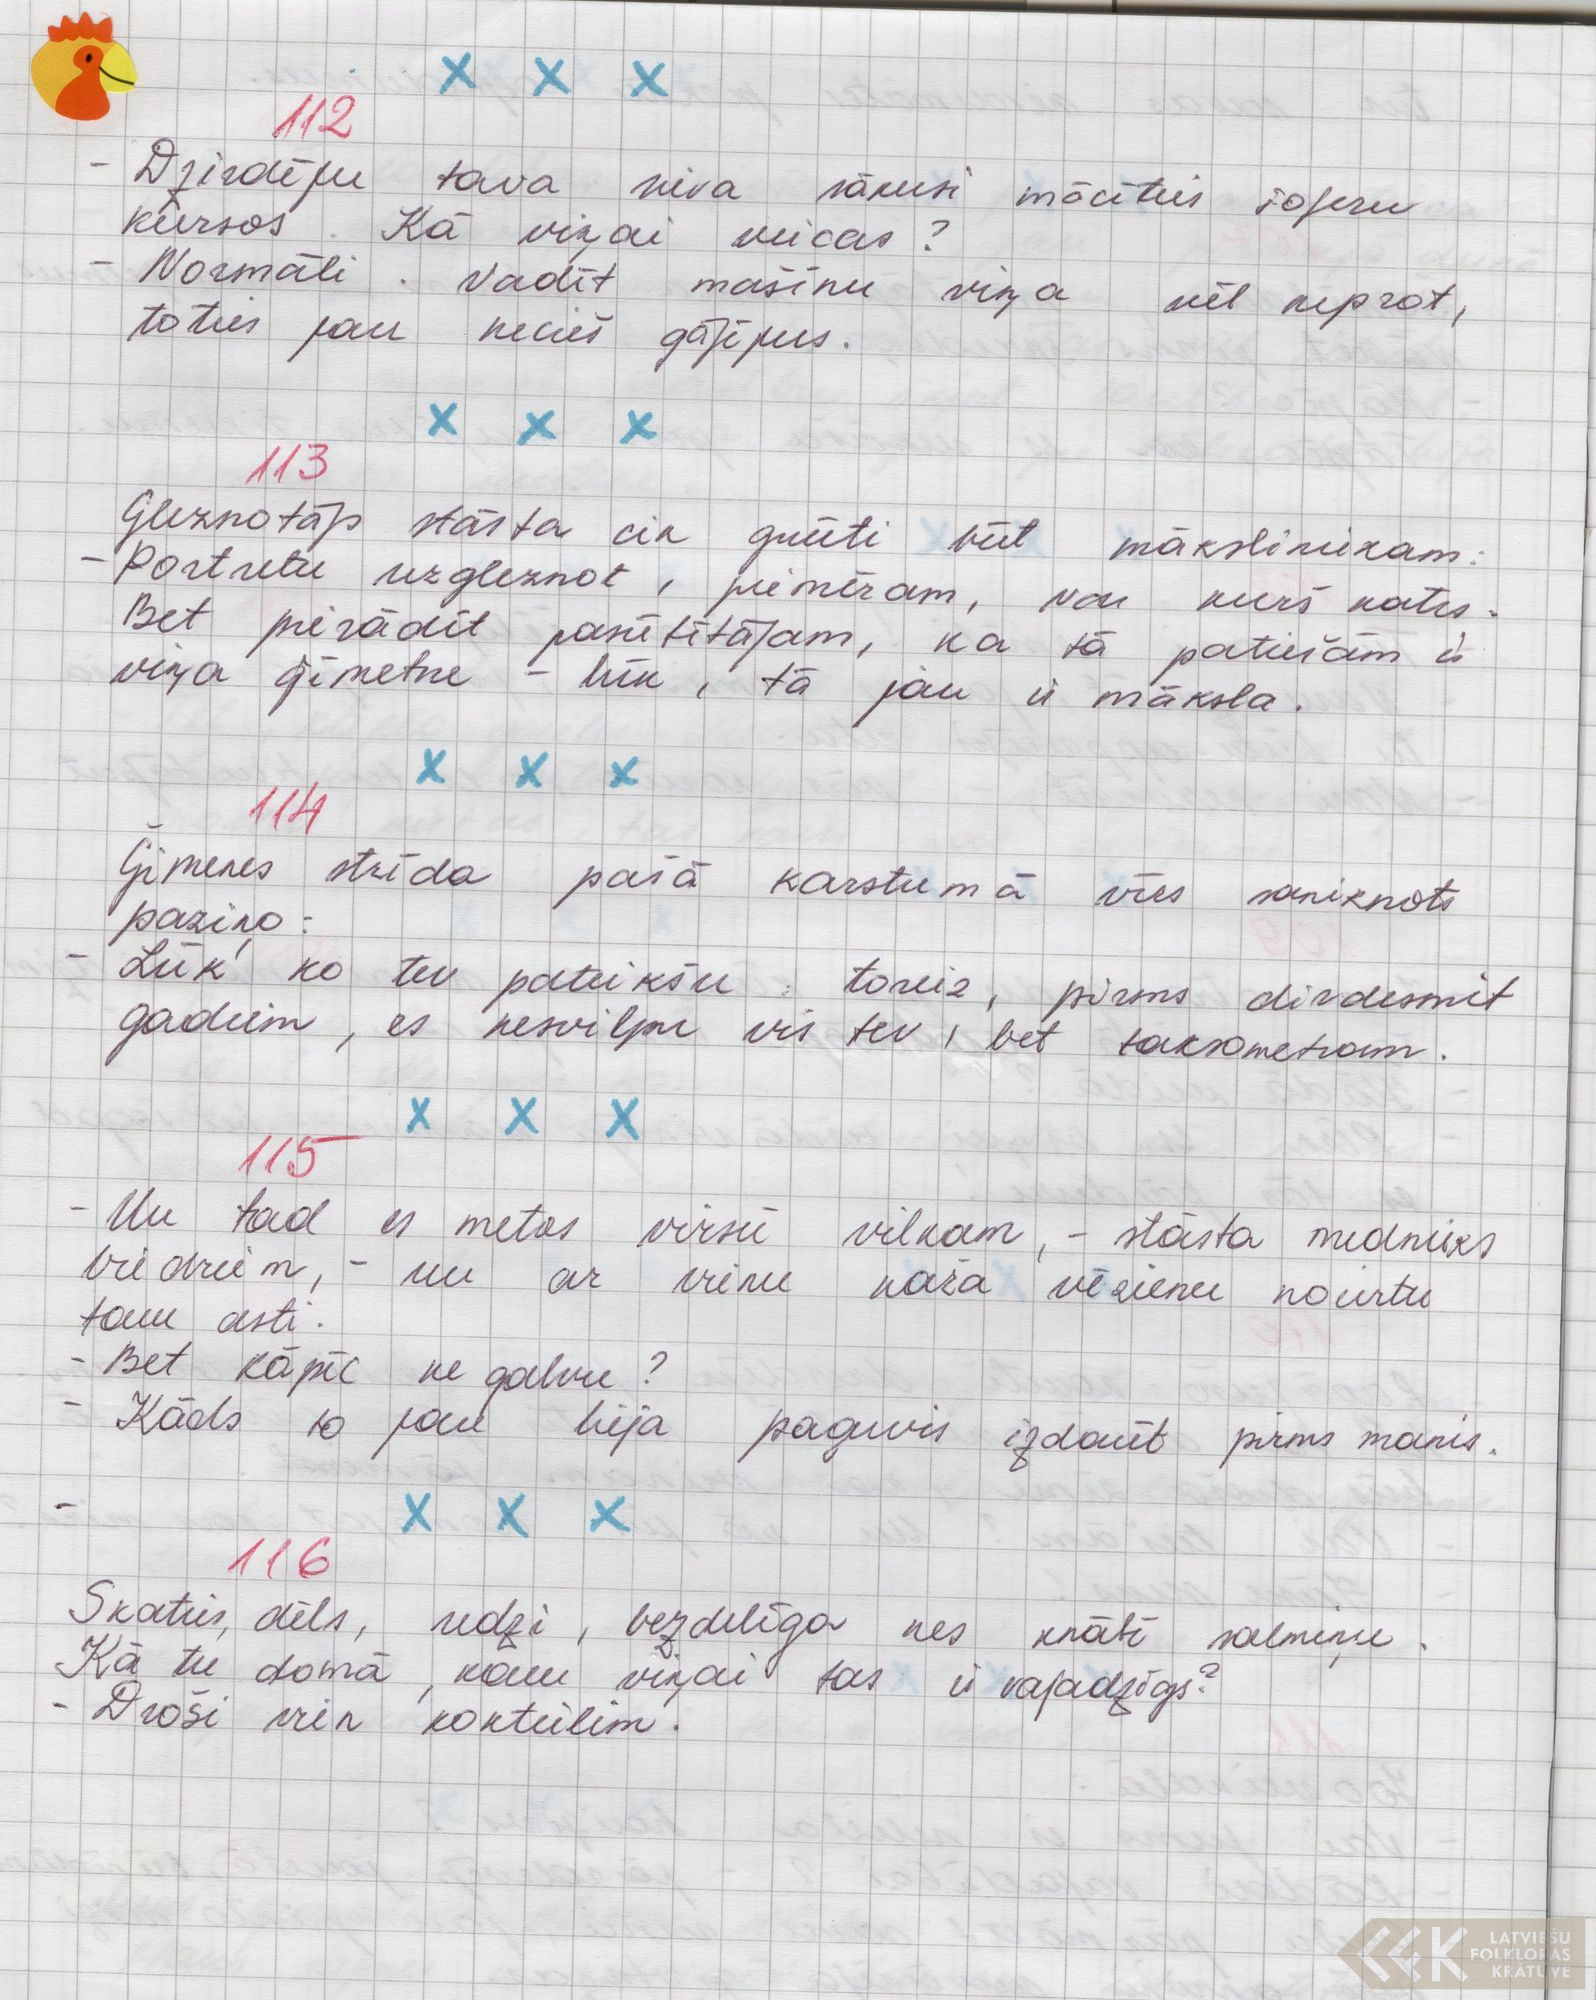 x x x
112
- Dzirdēju tava sieva sākusi mācīties šoferu
kursos. Kā viņai veicas?
- Normāli. Vadīt mašīnu viņa vēl neprot,
toties jau necieš gājējus.
x x x
113
Gleznotājs stāsta cik grūti būt māksliniekam:
- Portretu uzgleznot, piemēram, var kurš katrs.
Bet pierādīt pasūtītājam, ka tā patiešām ir
viņa ģīmetne - lūk, tā jau ir māksla.
x x x
114
Ģimenes strīda pašā karstumā vīrs saniknots
paziņo:
- Lūk ko tev pateikšu: toreiz, pirms divdesmit
gadiem, es nesvilpu vis tev, bet taksometram.
x x x
115
- Un tad es metos virsū vilkam, - stāsta mednieks
biedriem, - un ar vienu naža vēzienu nocirtu
tam asti.
- Bet kāpēc ne galvu?
- Kāds to jau bija paguvis izdarīt pirms manis.
- x x x
116
Skaties, dēls, redzi, bezdelīga nes knābī salmiņu.
Kā tu domā, kam viņai tas ir vajadzīgs?
- Droši vien kokteilim.
LATVIEŠU
FOLKLORAS
KRĀTUVE